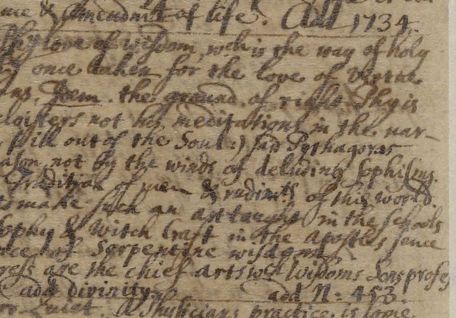 & Amendmt of life. Add 1734.
love of wisdom, wch is the way of holy
once taken for the love of Vertue
the ground of right Phy is
not her meditations in the nar-
out of the Soul:) said Pythagoras
not by the winds of deluding Sophisms.
Tradition of men & rudimts of this world
make such an art taught in the schools
& Witch craft in the Apostles sence
of Serpentine wisdom
are the chief arts wch Wisdoms Sons profes
add divinity add N: 453.
A Physicians practice is some